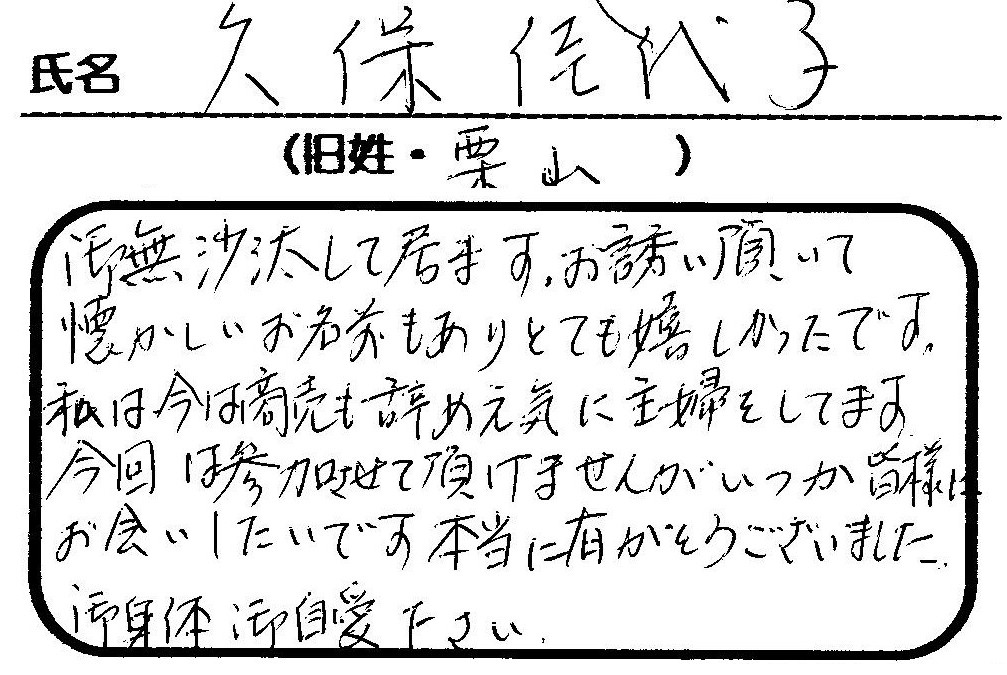 氏名 久保佳代子
(旧姓・栗山)
御無沙汰して居ます。お誘い頂いて
懐かしいお名前もありとても嬉しかったです。
私は今は商売も辞め元気に主婦をしてます
今回は参加させて頂けませんがいつか皆様に
お会いしたいです本当に有がとうございました。
御身体御自愛下さい。